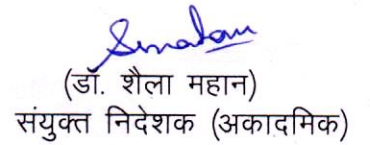 (डॉ. शैला महान)
संयुक्त निदेशक (अकादमिक)